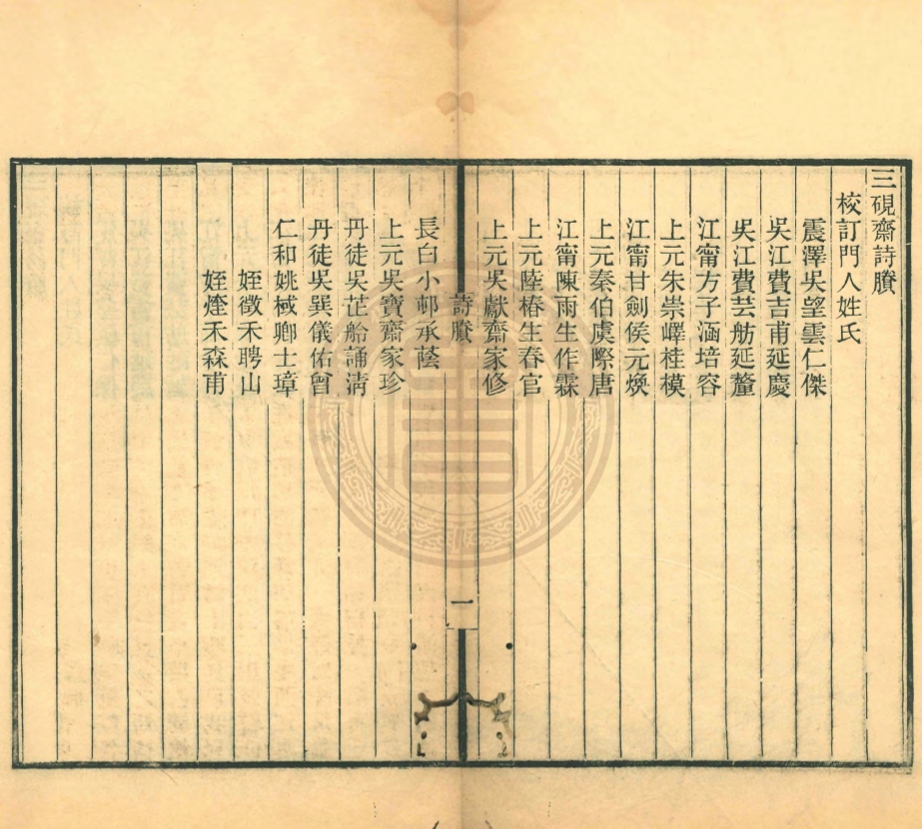 三硯齋詩賸
校訂門人姓氏
震澤吳望雲仁傑
吳江費吉甫延慶
吳江費芸舫延釐
江甯方子涵培容
上元朱崇嶧桂模
江甯甘劍侯元煥
上元秦伯虞際唐
江甯陳雨生作霖
上元陸椿生春官
上元吳獻齋家修
詩賸
一
長白小邨承蔭
上元吳寶齋家珍
丹徒吳芷舲誦清
丹徒吳巽儀佑曾
仁和姚棫卿士璋
姪徵禾聘山
姪煃禾森甫